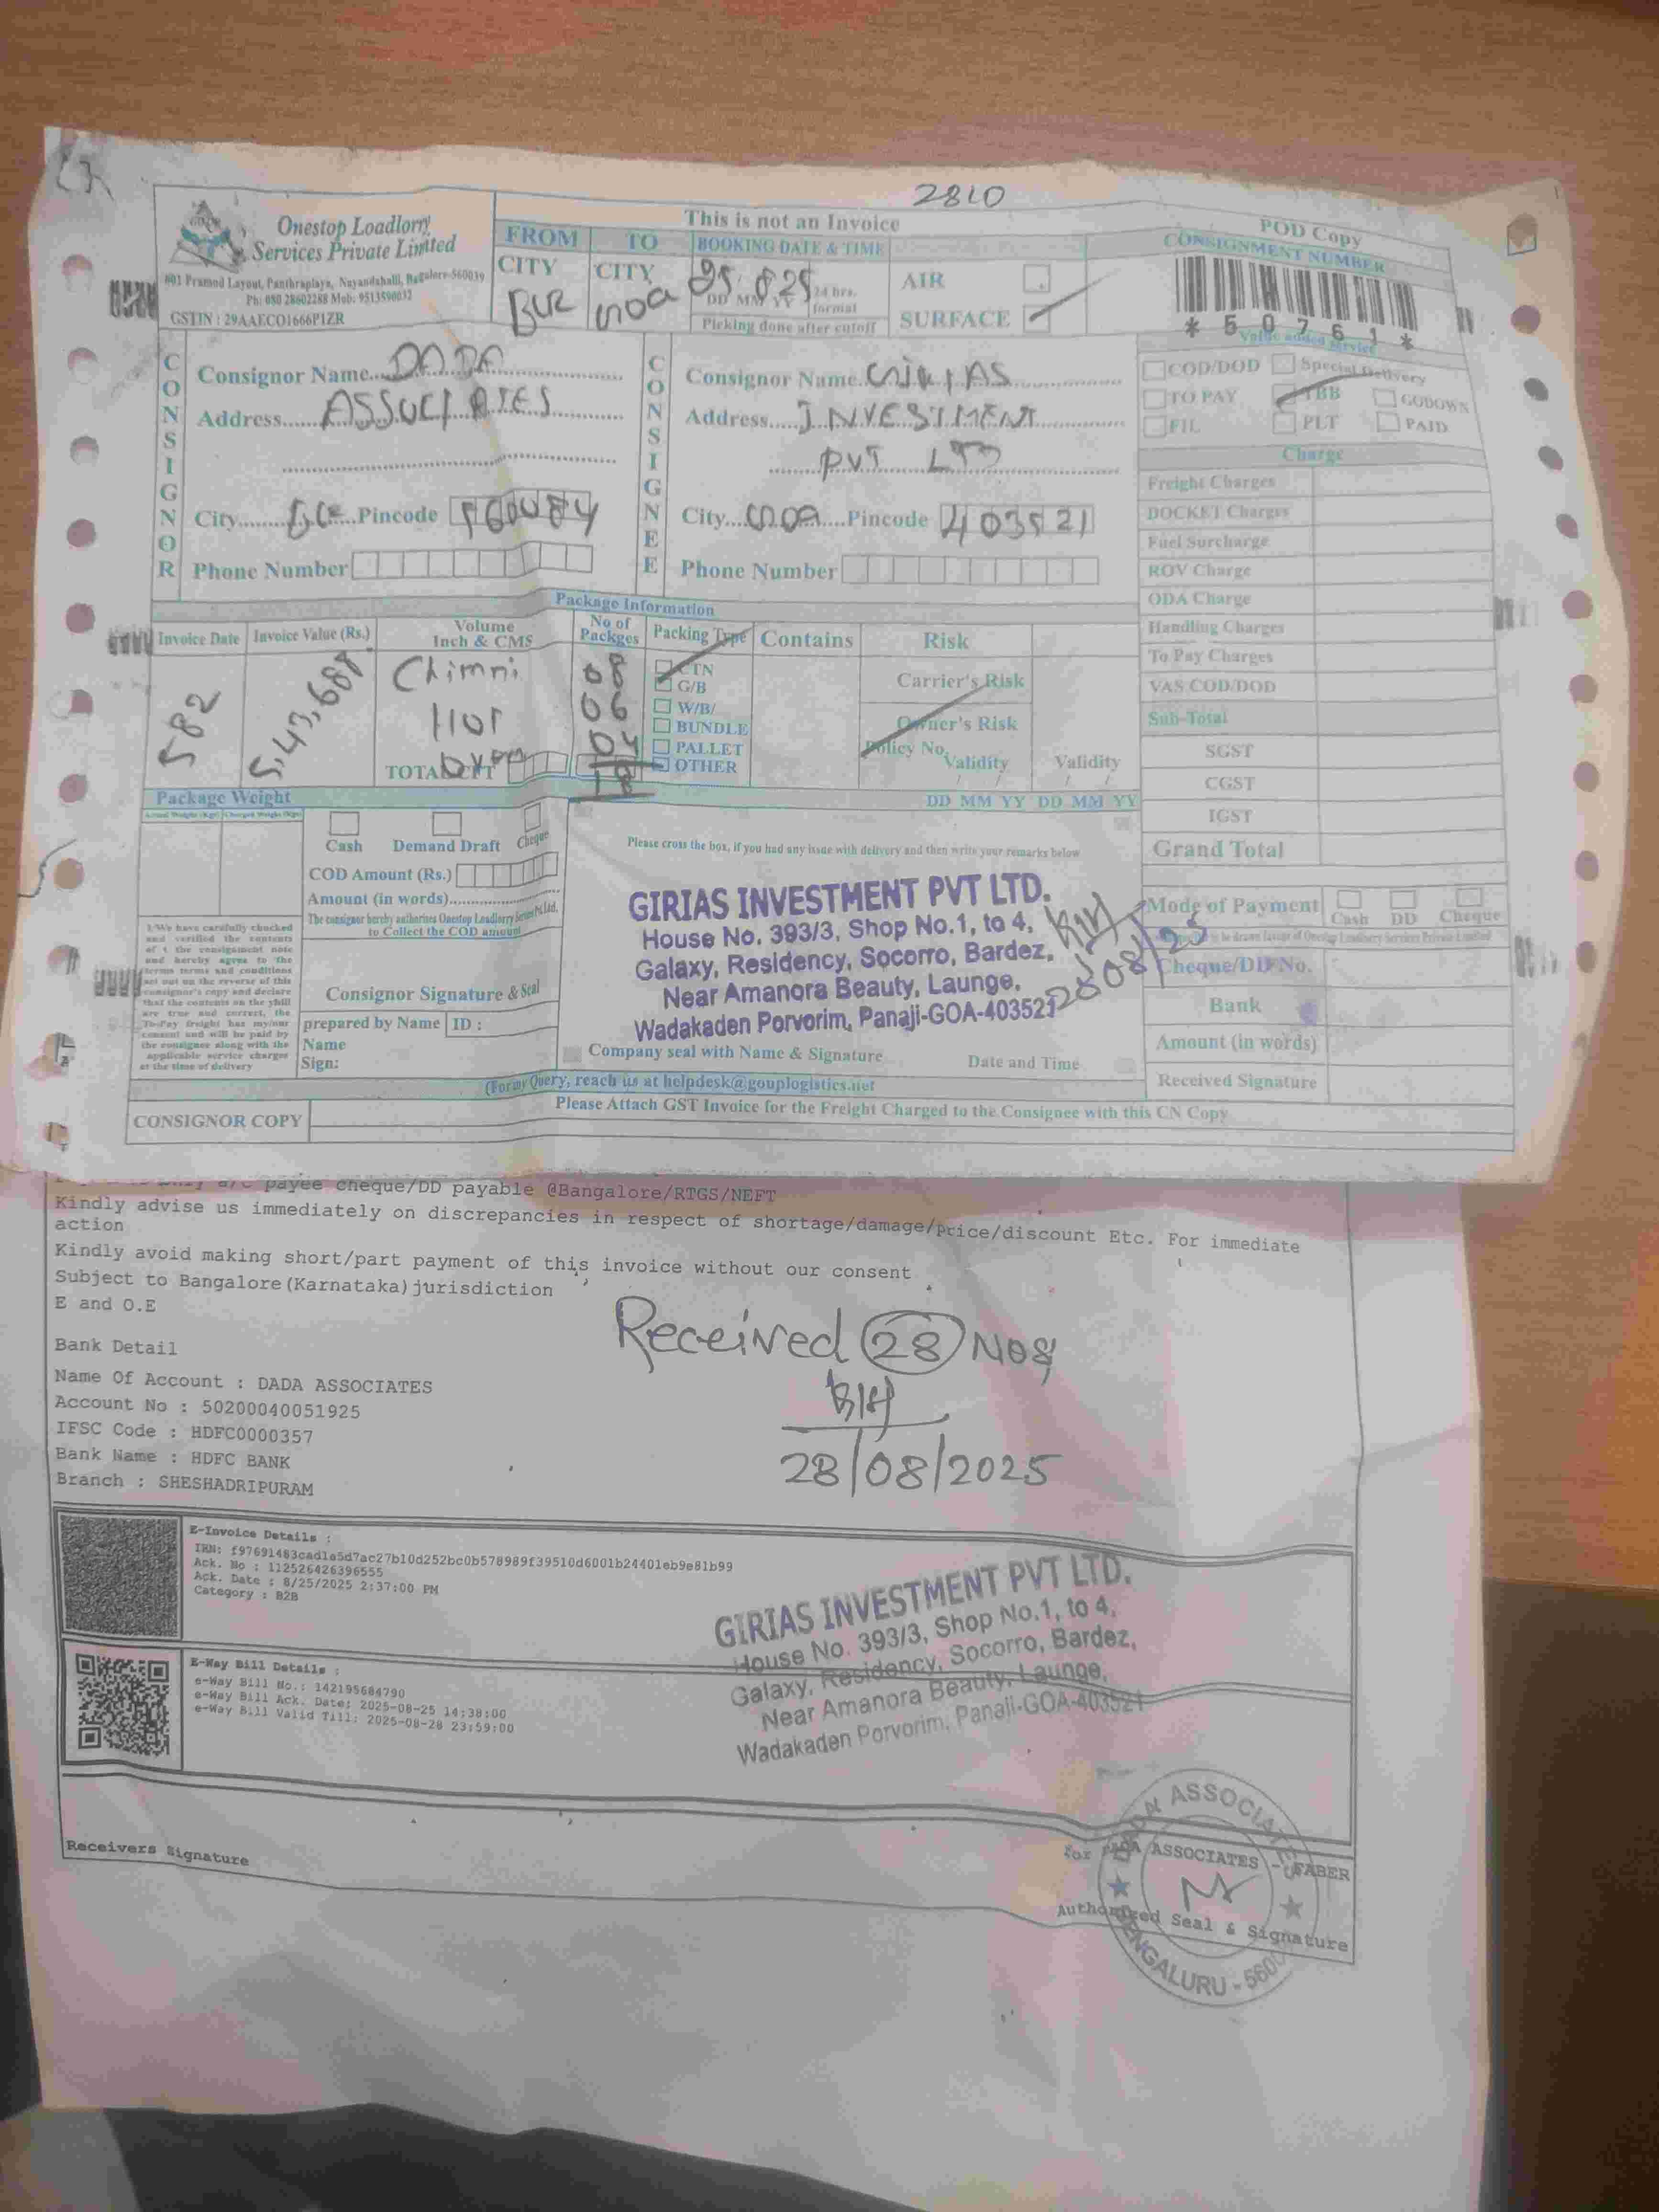 2810
Onestop Loadlorry
Services Private Limited
601 Pramod Layout, Panthrapalaya, Nayandahalli, Bagalore-560039
Ph: 080 28602288 Mob: 9513590032
GSTIN : 29AAECO1666P1ZR
This is not an Invoice
FROM TO BOOKING DATE & TIME
CITY CITY
BLR GOA
25 8 25
DD MM YY 24 hrs. format
Picking done after cutoff
AIR
SURFACE
POD Copy
CONSIGNMENT NUMBER
* 5 0 7 6 1 *
Value added service
COD/DOD Special Delivery
TO PAY TBB GODOWN
FIL PLT PAID
CONSIGNOR
Consignor Name DADA
Address ASSOCIATES
City Pincode
Phone Number
CONSIGNEE
Consignor Name
Address INVESTMENT
PVT LTD
City GOA Pincode 403521
Phone Number
Charge
Freight Charges
DOCKET Charges
Fuel Surcharge
ROV Charge
ODA Charge
Handling Charges
To Pay Charges
VAS COD/DOD
Sub-Total
SGST
CGST
IGST
Grand Total
Package Information
Invoice Date Invoice Value (Rs.) Volume Inch & CMS No of Packges Packing Type Contains Risk
582 5,43,688
Chimni 08
Hob 06
Oven 04
TOTAL CFT 18
CTN
G/B
W/B/
BUNDLE
PALLET
OTHER
Carrier's Risk
Owner's Risk
Policy No.
Validity Validity
DD MM YY DD MM YY
Package Weight
Actual Weight (Kgs) Charged Weight (Kgs)
Cash Demand Draft Cheque
COD Amount (Rs.)
Amount (in words)
The consignor hereby authorises Onestop Loadlorry Services Pvt.Ltd.
to Collect the COD amount
I/We have carefully checked
and verified the contents
of t the consignment note
and hereby agree to the
terms terms and conditions
set out on the reverse of this
consignor's copy and declare
that the contents on the
are true and correct, the
To-Pay freight has my/our
consent and will be paid by
the consignee along with the
applicable service charges
at the time of delivery
Consignor Signature & Seal
prepared by Name ID :
Name
Sign:
Please cross the box, if you had any issue with delivery and then write your remarks below
GIRIAS INVESTMENT PVT LTD.
House No. 393/3, Shop No.1, to 4,
Galaxy, Residency, Socorro, Bardez,
Near Amanora Beauty, Launge,
Wadakaden Porvorim, Panaji-GOA-403521
28/08/25
Company seal with Name & Signature Date and Time
Mode of Payment Cash DD Cheque
Cheque/DD No.
Bank
Amount (in words)
Received Signature
(For my Query, reach us at helpdesk@gouplogistics.net
Please Attach GST Invoice for the Freight Charged to the Consignee with this CN Copy
CONSIGNOR COPY
a/c payee cheque/DD payable @Bangalore/RTGS/NEFT
Kindly advise us immediately on discrepancies in respect of shortage/damage/price/discount Etc. For immediate
action
Kindly avoid making short/part payment of this invoice without our consent
Subject to Bangalore(Karnataka)jurisdiction
E and O.E
Received 28 Nos
28/08/2025
Bank Detail
Name Of Account : DADA ASSOCIATES
Account No : 50200040051925
IFSC Code : HDFC0000357
Bank Name : HDFC BANK
Branch : SHESHADRIPURAM
E-Invoice Details :
IRN: f97691483cad1a5d7ac27b10d252bc0b578989f39510d6001b24401eb9e81b99
Ack. No : 112526426396555
Ack. Date : 8/25/2025 2:37:00 PM
Category : B2B
E-Way Bill Details :
e-Way Bill No.: 142195684790
e-Way Bill Ack. Date: 2025-08-25 14:38:00
e-Way Bill Valid Till: 2025-08-28 23:59:00
GIRIAS INVESTMENT PVT LTD.
House No. 393/3, Shop No.1, to 4,
Galaxy, Residency, Socorro, Bardez,
Near Amanora Beauty, Launge,
Wadakaden Porvorim, Panaji-GOA-403521
Receivers Signature
for DADA ASSOCIATES - FABER
Authorized Seal & Signature
DADA ASSOCIATES
BENGALURU - 5600